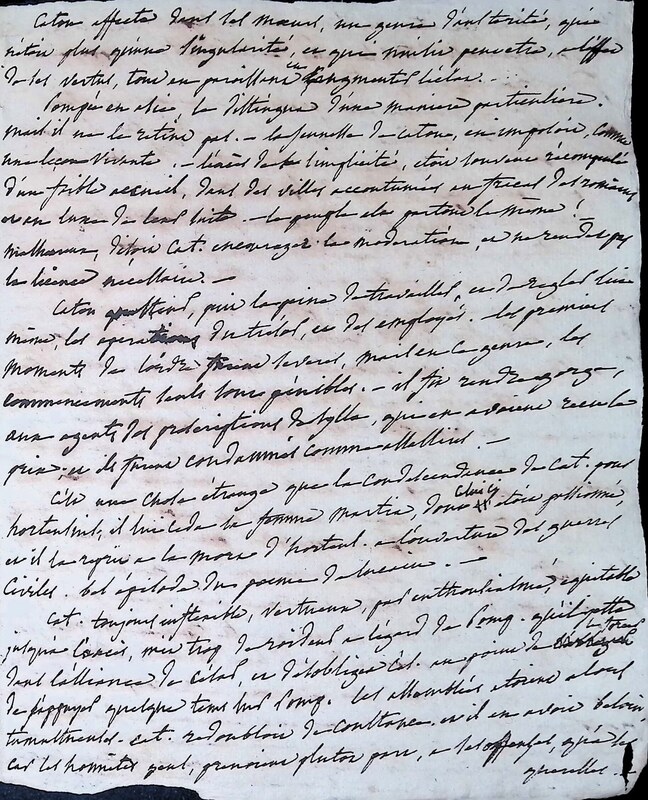 Caton affecta dans ses mœurs, un genre d'austérité, qui
n'étoit plus qu'une singularité, et qui nuisit peut etre, a l'effet
de ses vertus, tout en paroissant en augmenter l'éclat. —
Pompée en asie, le distingua d'une maniere particuliere.
mais il ne le retint pas. — la presence de caton, en imposoit, comme
une leçon vivante. — l'excès de sa simplicité, etoit souvent récompensé
d'un froid accueil, dans des villes accoutumées au fracas des romains
et au luxe de leur suite. — le peuple est partout le même!
malheureux, disoit Cat. encouragez la moderation, et ne rendez pas
la licence nécessaire. —
Caton questeur, prit la peine de travailler, et de regler lui
même, les operations du trésor, et des employés. les premiers
moments de l'ordre furent severes, mais en ce genre, les
commencements seuls sont pénibles. — il fit rendre gorge,
aux agents des proscriptions de Sylla, qui en avoient recu le
prix, et ils furent condamnés comme assassins. —
C'est une chose étrange que la condescendance de Cat. pour
hortensius, il lui ceda sa femme martia, dont il étoit passionné,
et il la reprit a la mort d'hortens. a l'ouverture des guerres
Civiles. bel épisode du poeme de lucain. —
Cat. toujours inflexible, vertueux, par enthousiasme, equitable
jusqu'a l'excès, mit trop de roideur a l'égard de Pomp. qu'il jetta
dans l'alliance de César, et s'obligea Cat. au point de le forcer
de s'appuyer quelque tems sur Pomp. les assemblées etoient alors
tumultueuses. Cat. redoubloit de constance, et il en avoit besoin,
car les honnêtes gens, prenoient plutot part, a ses offenses, qu'a ses
querelles. —